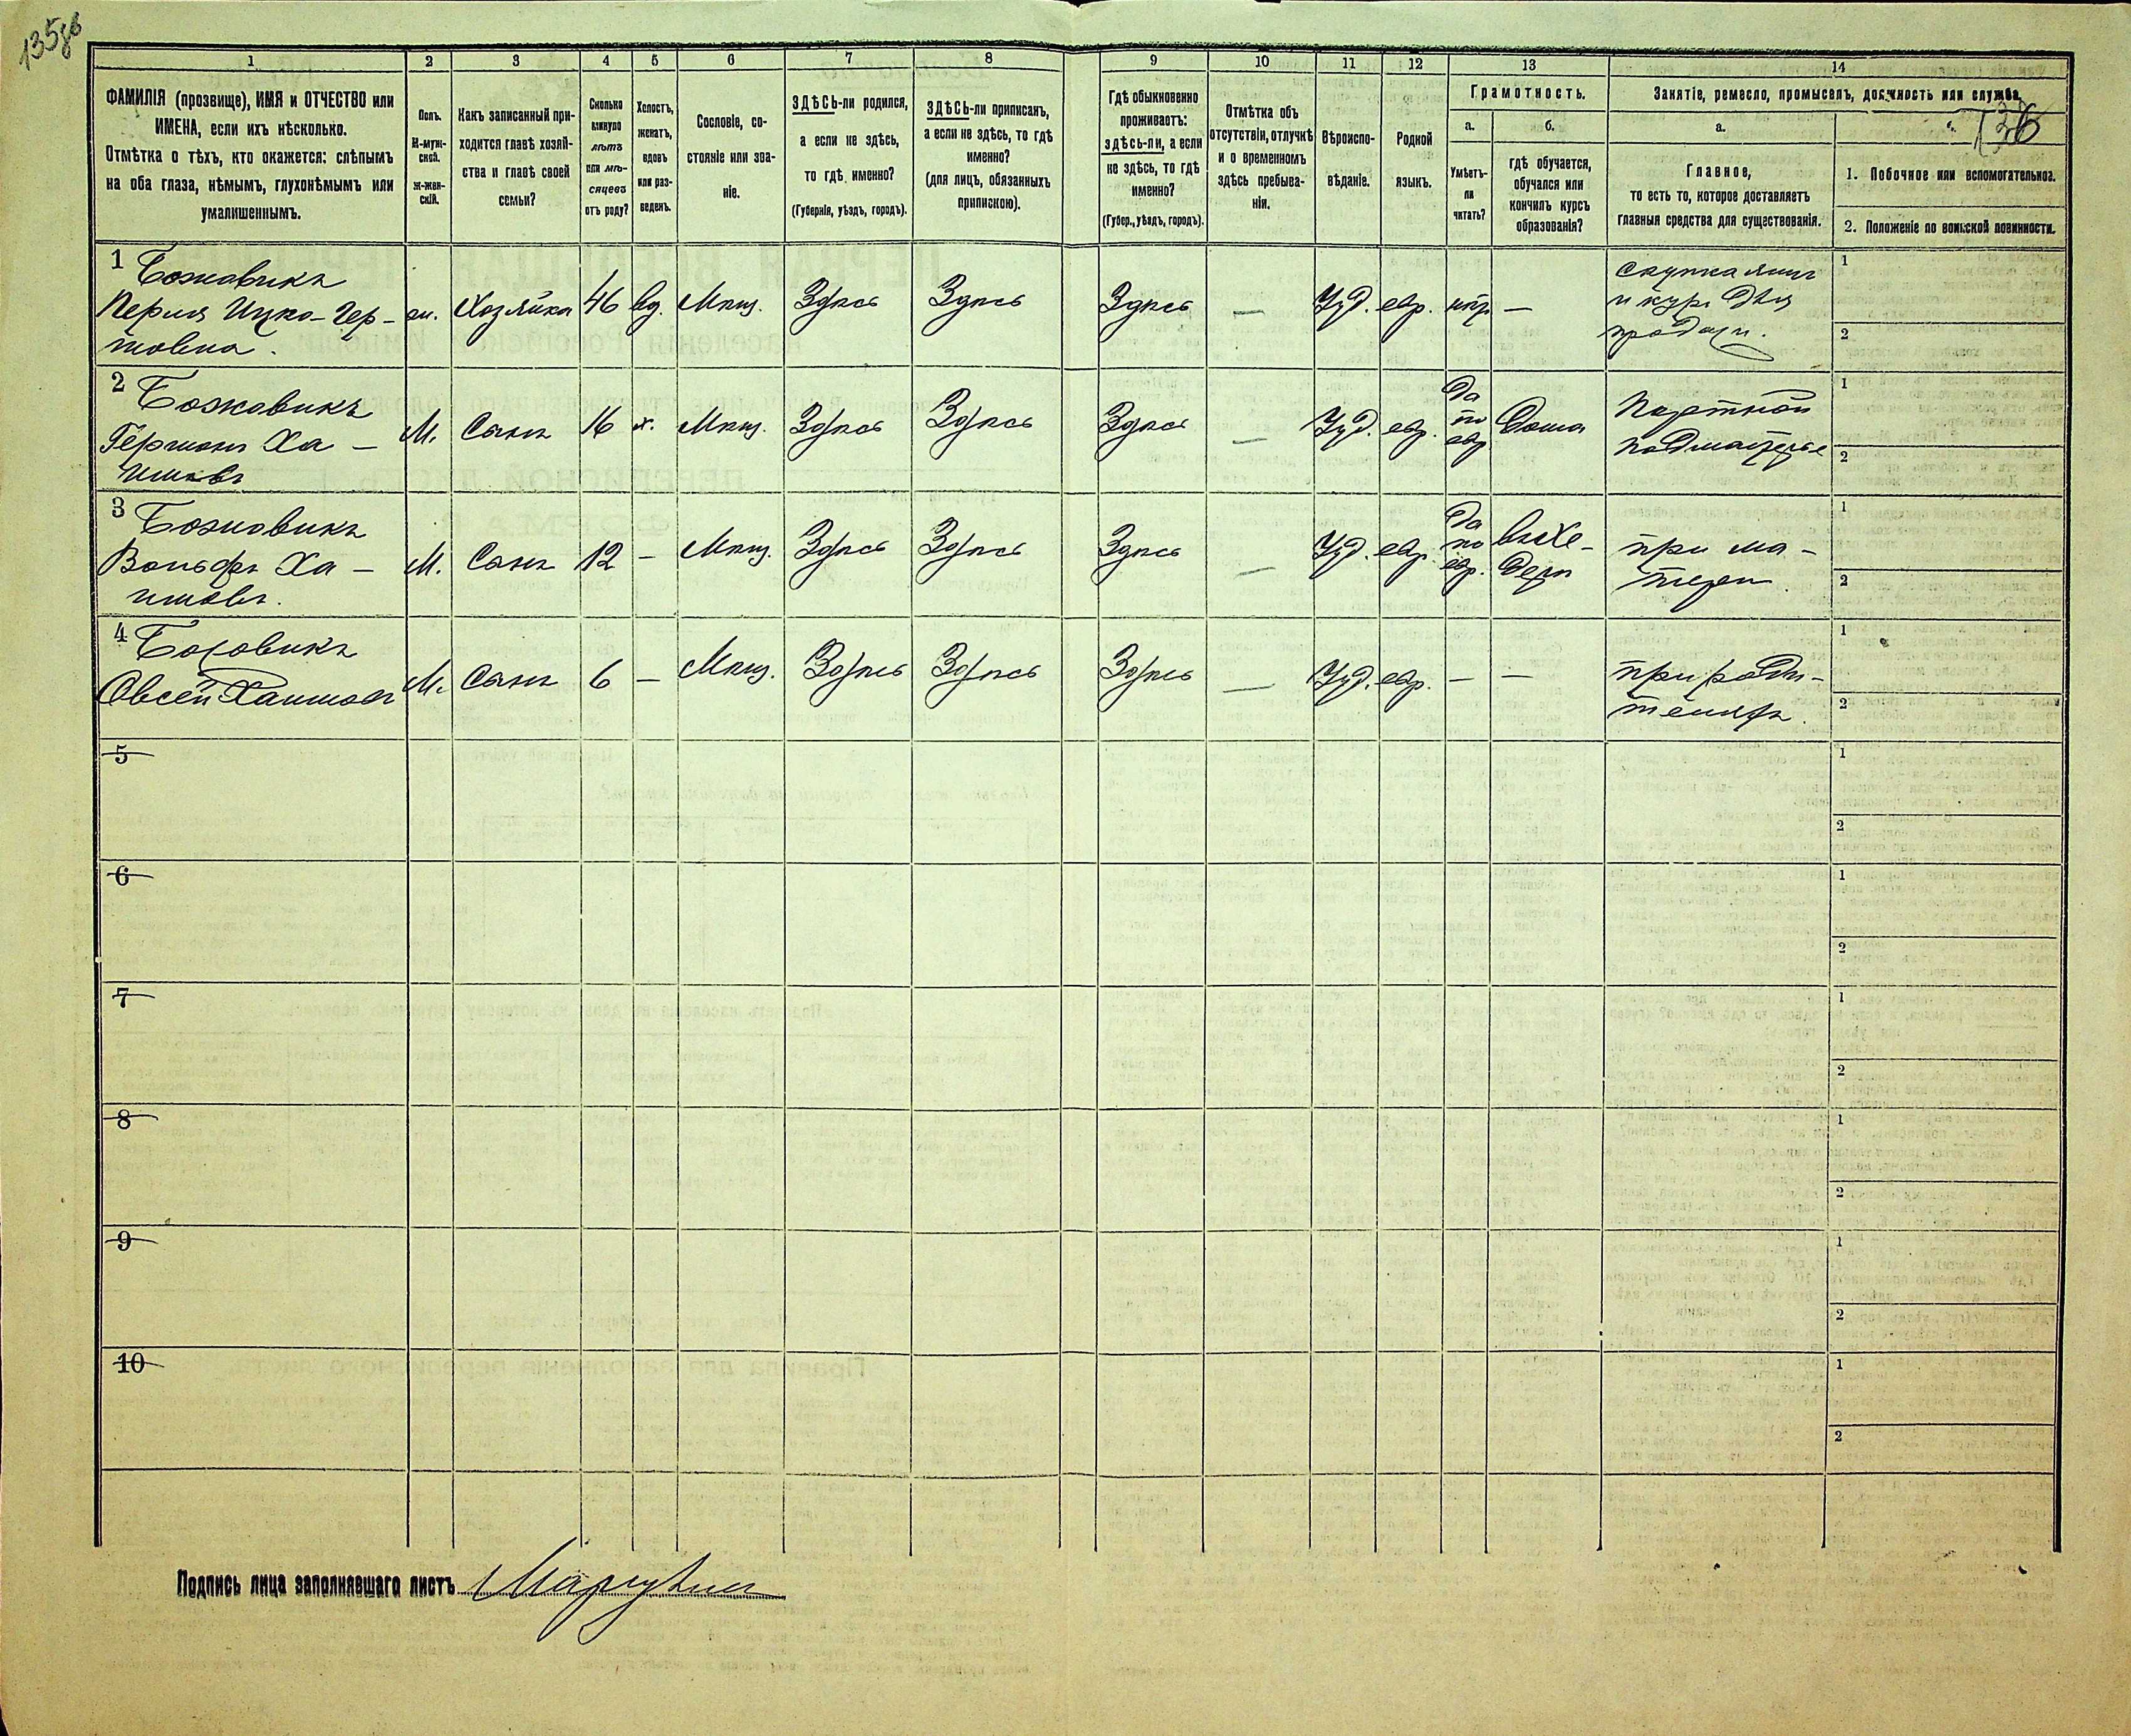 135об
136
1 2 3 4 5 6 7 8 9 10 11 12 13 14
ФАМИЛІЯ (прозвище), ИМЯ и ОТЧЕСТВО или
ИМЕНА, если ихъ нѣсколько.
Отмѣтка о тѣхъ, кто окажется: слѣпымъ
на оба глаза, нѣмымъ, глухонѣмымъ или
умалишеннымъ.
Полъ.
М-муж-
ской.
ж-жен-
скій.
Какъ записанный при-
ходится главѣ хозяй-
ства и главѣ своей
семьи?
Сколько
минуло
лѣтъ
или мѣ-
сяцевъ
отъ роду?
Холостъ,
женатъ,
вдовъ
или раз-
веденъ.
Сословіе, со-
стояніе или зва-
ніе.
ЗДѢСЬ-ли родился,
а если не здѣсь,
то гдѣ именно?
(Губернія, уѣздъ, городъ).
ЗДѢСЬ-ли приписанъ,
а если не здѣсь, то гдѣ
именно?
(для лицъ, обязанныхъ
припискою).
Гдѣ обыкновенно
проживаетъ:
здѣсь-ли, а если
не здѣсь, то гдѣ
именно?
(Губер., уѣздъ, городъ).
Отмѣтка объ
отсутствіи, отлучкѣ
и о временномъ
здѣсь пребыва-
ніи.
Вѣроиспо-
вѣданіе.
Родной
языкъ.
Грамотность.
а.
Умѣетъ-
ли
читать?
б.
гдѣ обучается,
обучался или
кончилъ курсъ
образованія?
Занятіе, ремесло, промыселъ, должность или служба.
а.
Главное,
то есть то, которое доставляетъ
главныя средства для существованія.
1. Побочное или вспомогательное.
2. Положеніе по воинской повинности.
1 Божовикъ
Перля Ицко-Гер-
шовна.
ж. Хозяйка 46 вд. Мѣщ. Здѣсь Здѣсь Здѣсь — Іуд. евр. нѣт —
скупка яицъ
и куръ для
продажи.
1
2
2 Божовикъ
Гершонъ Ха-
имовъ
М. Сынъ 16 х. Мѣщ. Здѣсь Здѣсь Здѣсь — Іуд. евр.
Да
по
евр.
Дома
Портной
подмастерье
1
2
3 Божовикъ
Вольфъ Ха-
имовъ.
М. Сынъ 12 — Мѣщ. Здѣсь Здѣсь Здѣсь — Іуд. евр.
Да
по
евр.
въ хе-
дерѣ
при ма-
тери.
1
2
4 Божовикъ
Овсей Хаимовъ
М. Сынъ 6 — Мѣщ. Здѣсь Здѣсь Здѣсь — Іуд. евр. — —
при роди-
теляхъ.
1
2
5
1
2
6
1
2
7
1
2
8
1
2
9
1
2
10
1
2
Подпись лица заполнявшаго листъ